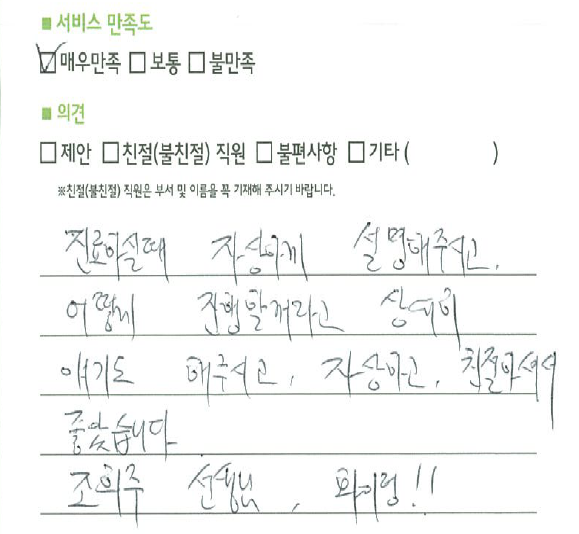 ■ 서비스 만족도
☑매우만족 □ 보통 □ 불만족
■ 의견
□ 제안 □친절(불친절) 직원 □ 불편사항 □기타 (          )
※친절(불친절) 직원은 부서 및 이름을 꼭 기재해 주시기 바랍니다.
진료하실때 자상하게 설명해주시고,
어떻게 진행할꺼라고 상세히
얘기도 해주시고, 자상하고, 친절하셔서
좋았습니다.
조희주 선생님, 화이팅!!